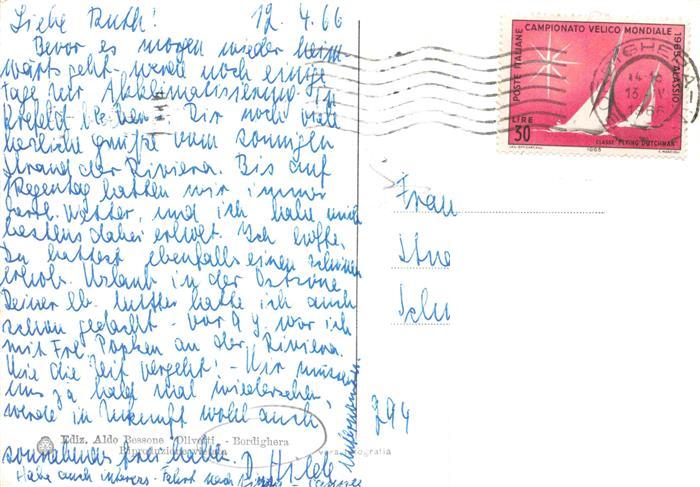 Liebe Ruth! 12.4.66
Bevor es morgen wieder heim
wärts geht - werde noch einige
Tage zur Akklimatisierung in
Krefeld bleiben - Dir noch viele
herzliche Grüße vom sonnigen
Strand der Riviera. Bis auf
1 Regentag hatten wir immer
herrl. Wetter, und ich habe mich
bestens dabei erholt. Ich hoffe,
Du hattest ebenfalls einen schönen
erhols. Urlaub in der Ostzone
Deiner lb. Mutter hatte ich auch
schon gedacht - vor 9 J. war ich
mit Frl. Popken an der Riviera.
Wie die Zeit vergeht! - Wir müssen
uns ja bald mal wiedersehen,
werde in Zukunft wohl auch
sonnabends frei haben.
D. Hilde
Habe auch - Fahrt nach
Ediz. Aldo Bessone Oliveti - Bordighera
Riproduzione vietata
vera fotografia
294
Frau
POSTE ITALIANE
CAMPIONATO VELICO MONDIALE
1965 - ALASSIO
LIRE
30
CLASSE "FLYING DUTCHMAN"
1965
13 - IV
1966